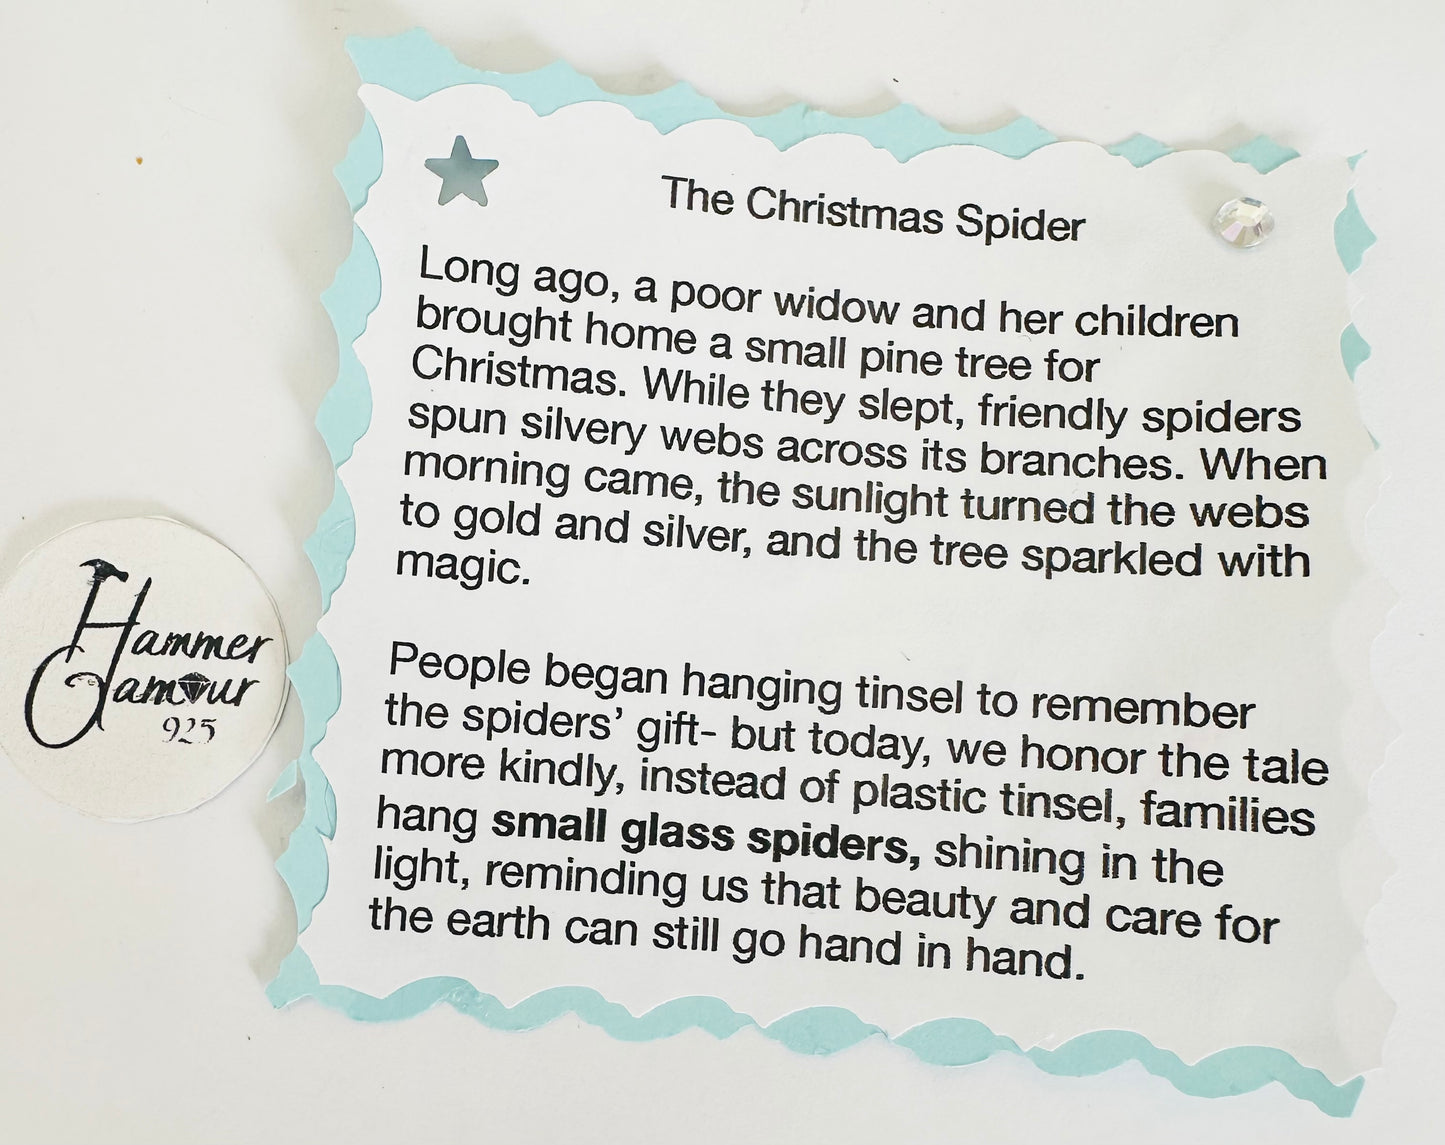 The Christmas Spider
Long ago, a poor widow and her children
brought home a small pine tree for
Christmas. While they slept, friendly spiders
spun silvery webs across its branches. When
morning came, the sunlight turned the webs
to gold and silver, and the tree sparkled with
magic.
People began hanging tinsel to remember
the spiders’ gift- but today, we honor the tale
more kindly, instead of plastic tinsel, families
hang small glass spiders, shining in the
light, reminding us that beauty and care for
the earth can still go hand in hand.
Hammer
Glamour
925